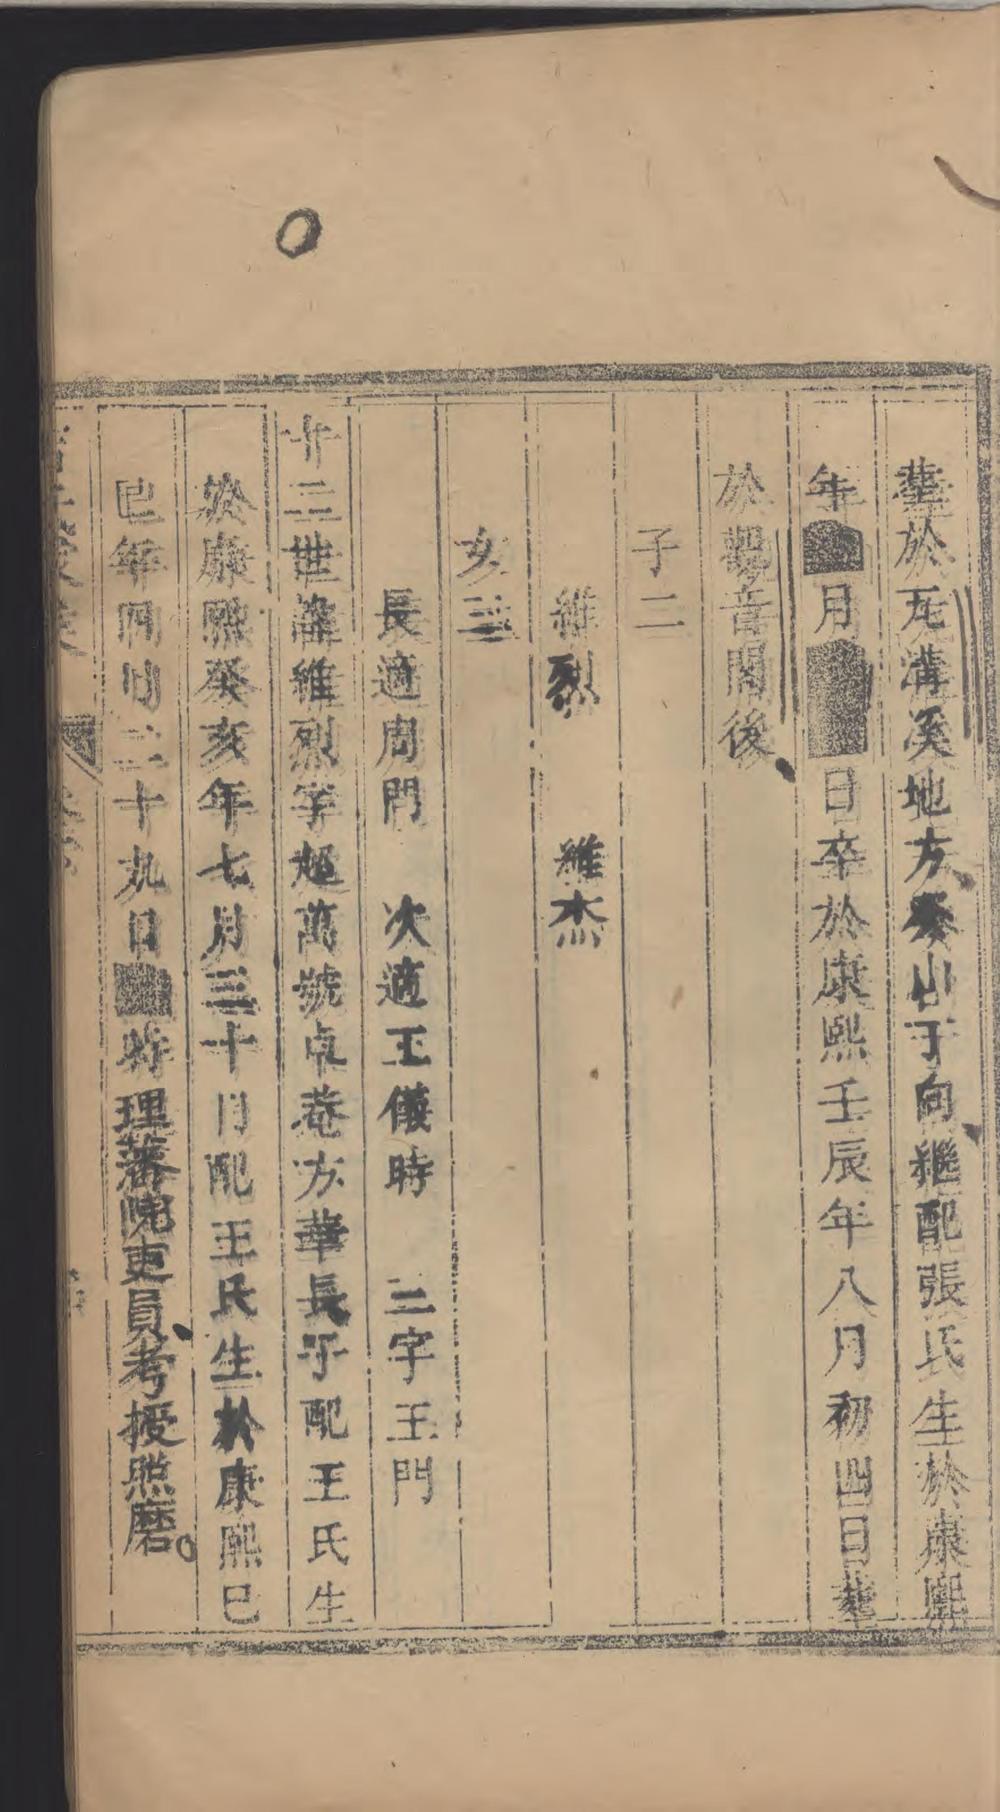 葬於瓦溝溪地方癸山丁向繼配張氏生於康熙
年月日卒於康熙壬辰年八月初四日葬
於觀音閣後
子二
維烈 維杰
女三
長適周門 次適王儀時 三字王門
十二世諱維烈字超萬號卓菴方華長子配王氏生
於康熙癸亥年七月三十日配王氏生於康熙己
巳年四月二十九日時理藩院吏員考授照磨